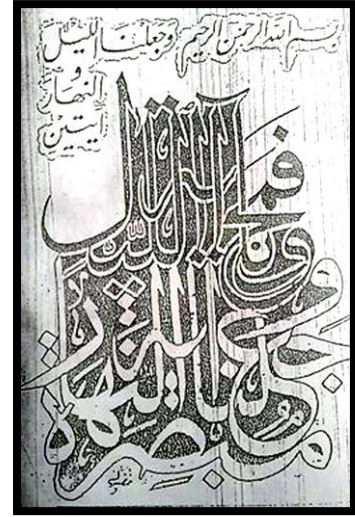 بسم الله الرحمن الرحيم وجعلنا الليل
و
النهار
ايتين
فمحونا آية الليل
وجعلنا آية النهار
مبصرة